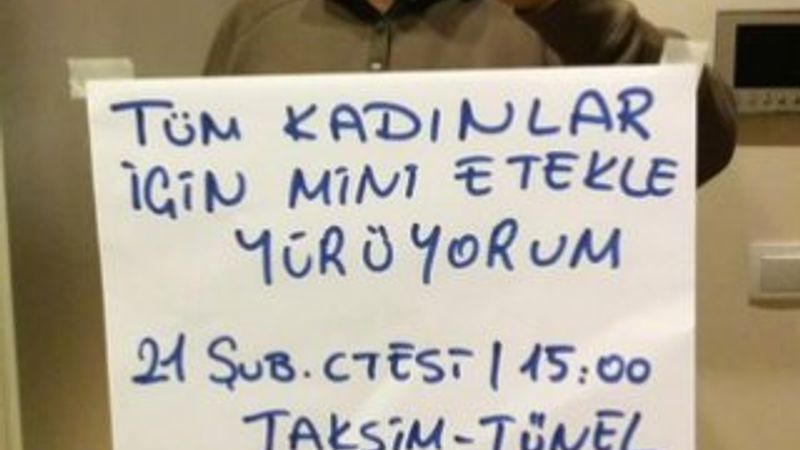 TÜM KADINLAR
İÇİN MİNİ ETEKLE
YÜRÜYORUM
21 ŞUB. CTESİ / 15:00
TAKSİM-TÜNEL